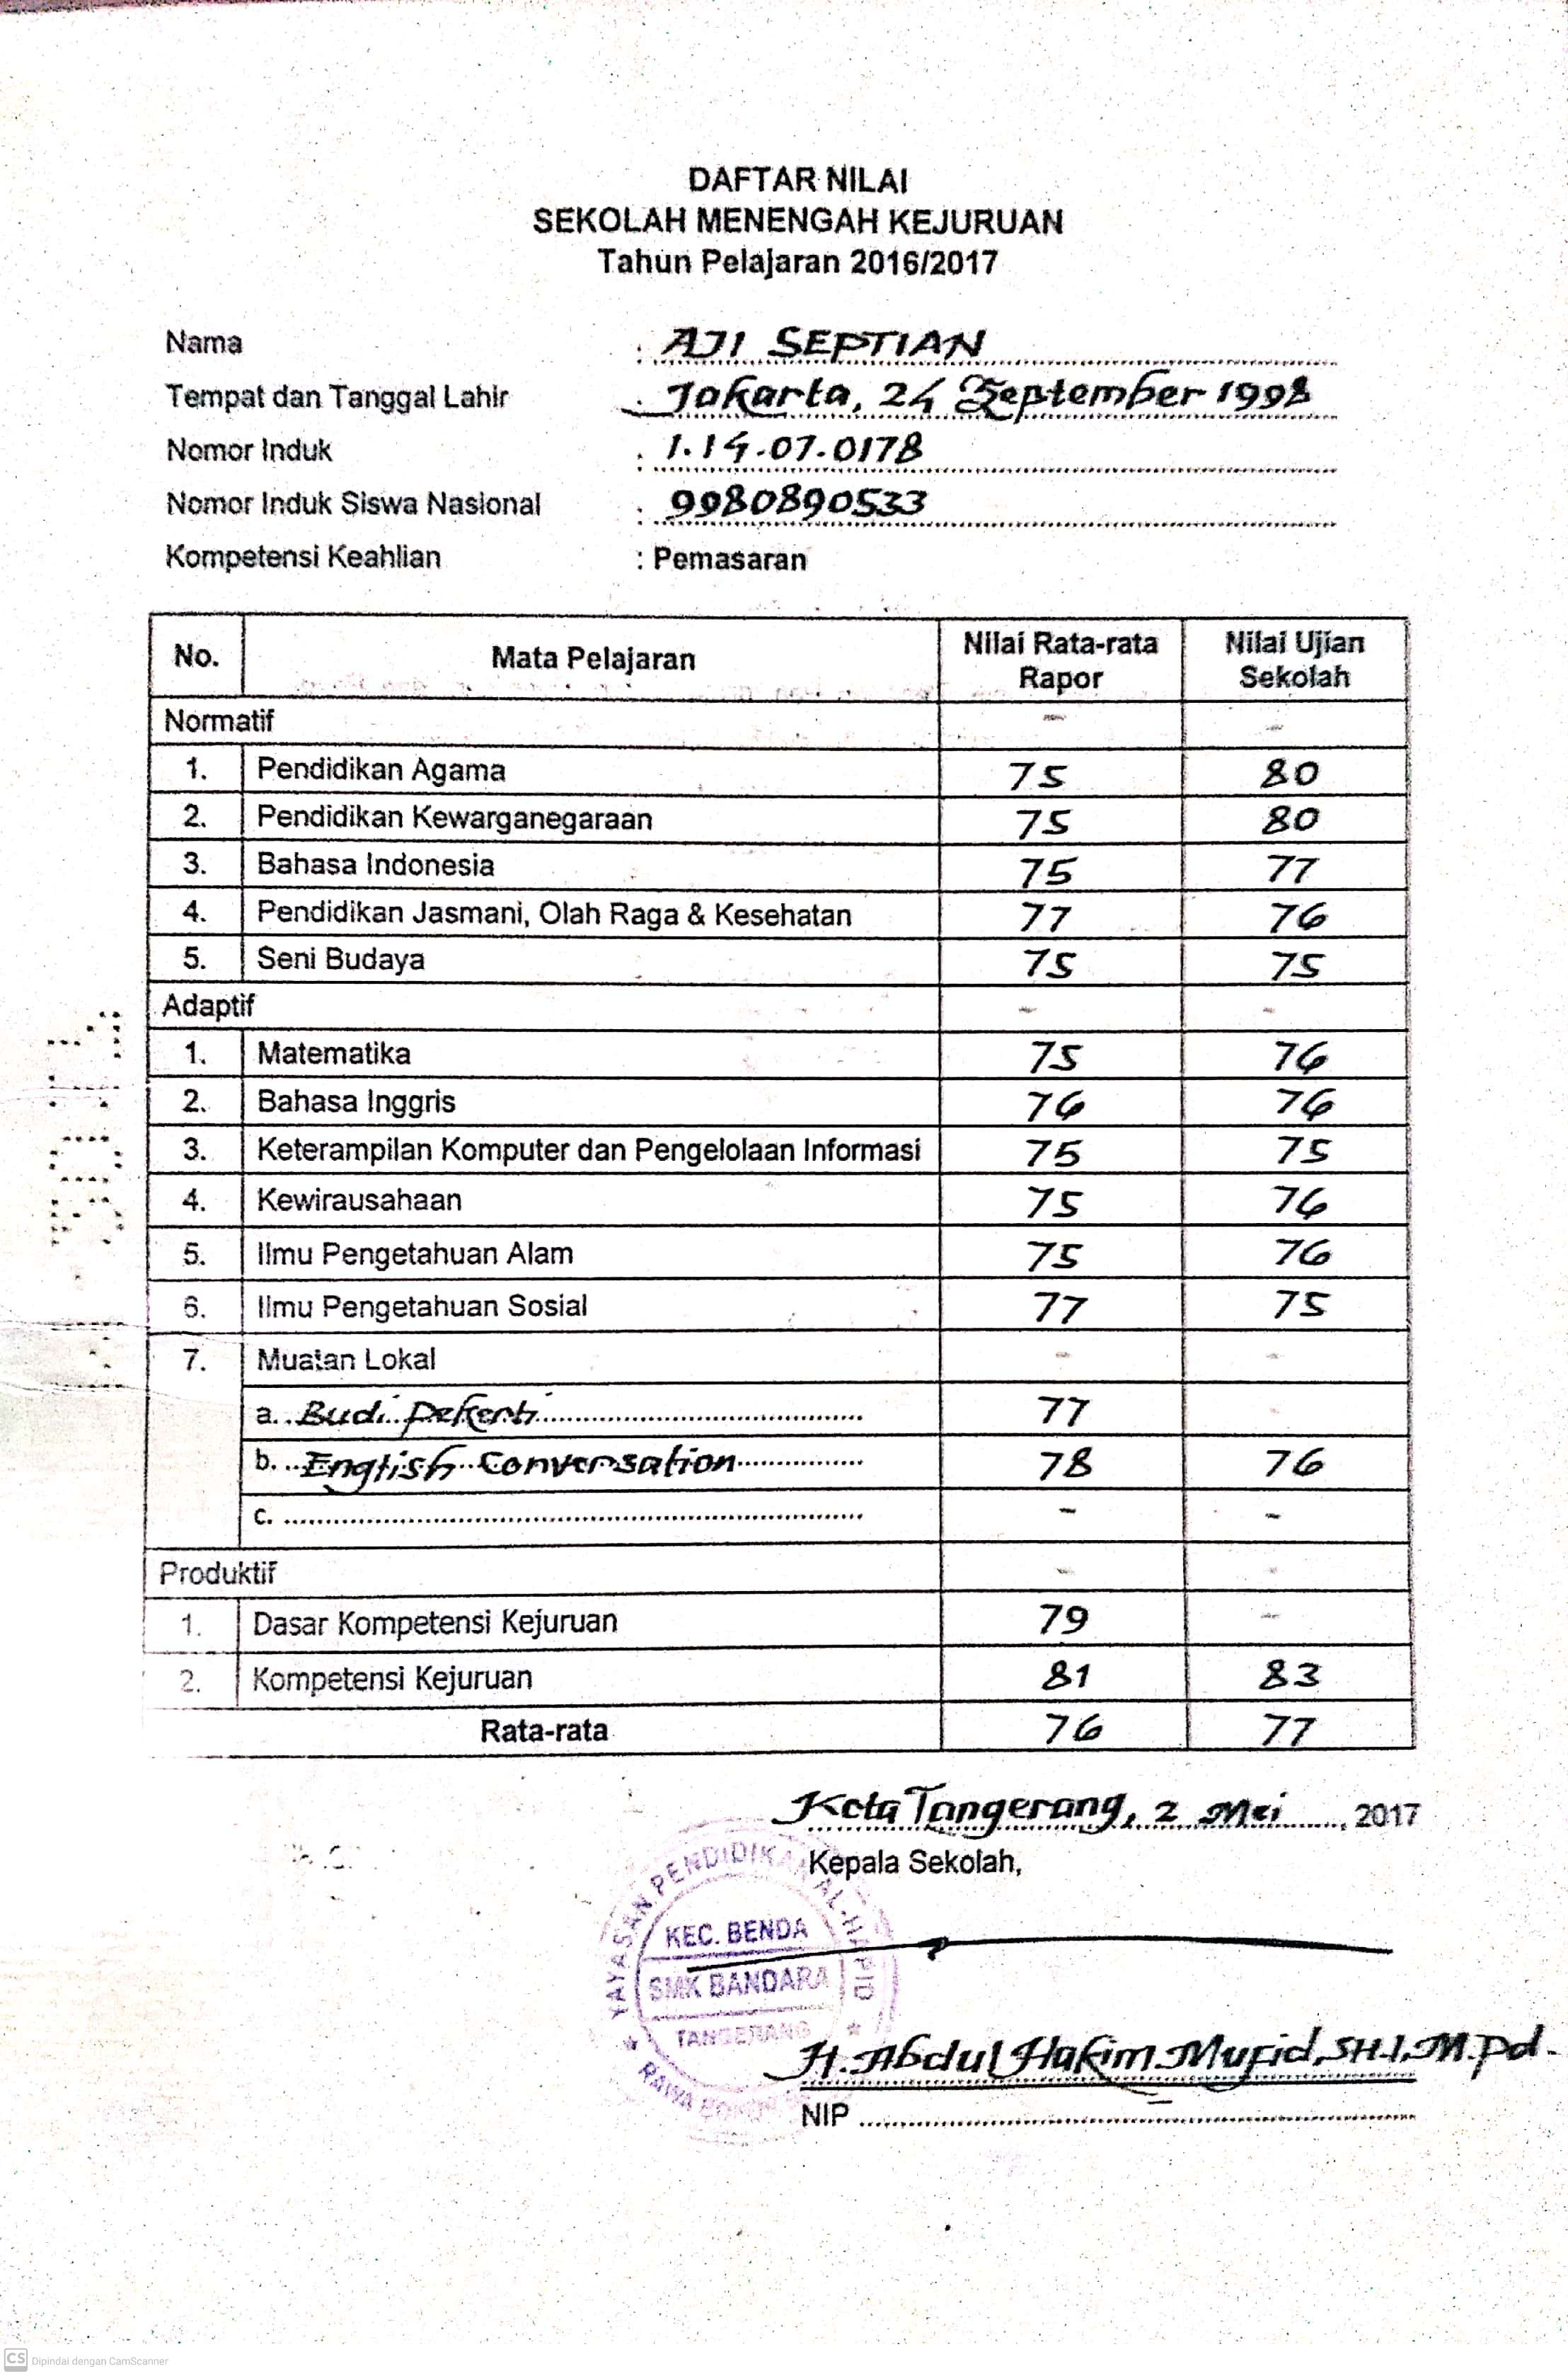 DAFTAR NILAI
SEKOLAH MENENGAH KEJURUAN
Tahun Pelajaran 2016/2017
Nama : AJI SEPTIAN
Tempat dan Tanggal Lahir : Jakarta, 24 September 1998
Nomor Induk : 1.14.07.0178
Nomor Induk Siswa Nasional : 9980890533
Kompetensi Keahlian : Pemasaran
No. Mata Pelajaran Nilai Rata-rata Rapor Nilai Ujian Sekolah
Normatif - -
1. Pendidikan Agama 75 80
2. Pendidikan Kewarganegaraan 75 80
3. Bahasa Indonesia 75 77
4. Pendidikan Jasmani, Olah Raga & Kesehatan 77 76
5. Seni Budaya 75 75
Adaptif - -
1. Matematika 75 76
2. Bahasa Inggris 76 76
3. Keterampilan Komputer dan Pengelolaan Informasi 75 75
4. Kewirausahaan 75 76
5. Ilmu Pengetahuan Alam 75 76
6. Ilmu Pengetahuan Sosial 77 75
7. Muatan Lokal - -
a. Budi Pekerti 77 -
b. English Conversation 78 76
c. - -
Produktif - -
1. Dasar Kompetensi Kejuruan 79 -
2. Kompetensi Kejuruan 81 83
Rata-rata 76 77
Kota Tangerang, 2 Mei, 2017
Kepala Sekolah,
YAYASAN PENDIDIKAN
KEC. BENDA
SMK BANDARA
TANGERANG
H. Abdul Hakim Mufid, SH.I, M.Pd.
NIP -
CS Dipindai dengan CamScanner